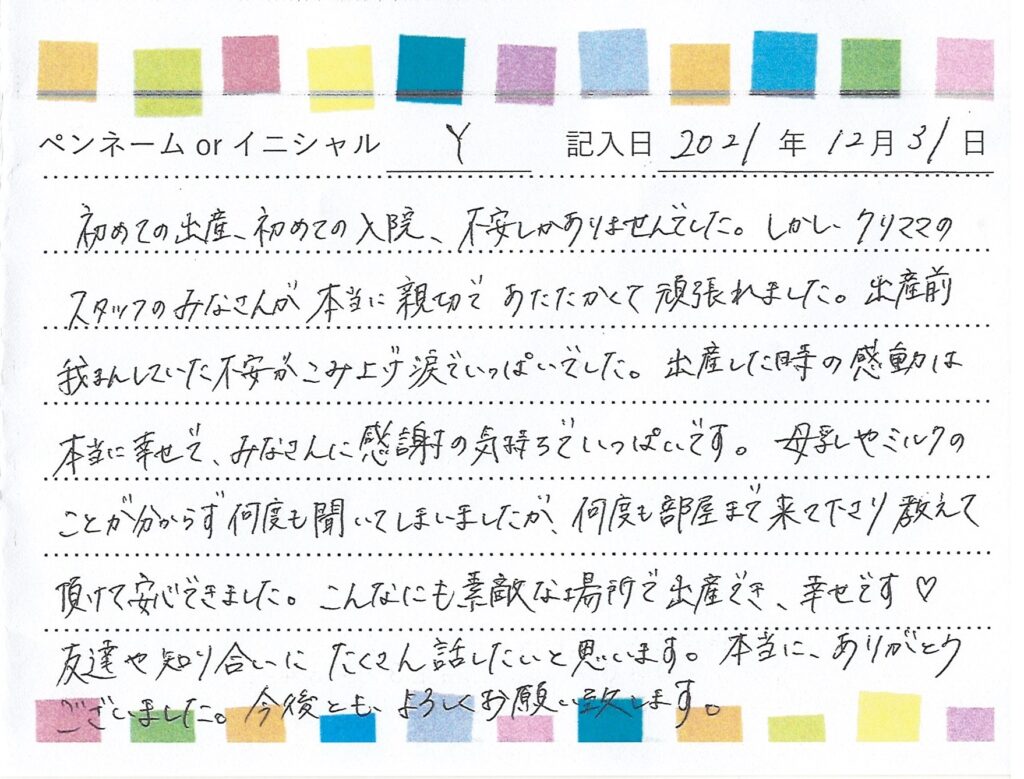 ペンネーム or イニシャル Y 記入日 2021 年 12 月 31 日
初めての出産、初めての入院、不安しかありませんでした。しかし、クリママの
スタッフのみなさんが本当に親切であたたかくて頑張れました。出産前
我まんしていた不安がこみ上げ涙でいっぱいでした。出産した時の感動は
本当に幸せで、みなさんに感謝の気持ちでいっぱいです。母乳やミルクの
ことが分からず何度も聞いてしまいましたが、何度も部屋まで来て下さり教えて
頂けて安心できました。こんなにも素敵な場所で出産でき、幸せです♡
友達や知り合いにたくさん話したいと思います。本当に、ありがとう
ございました。今後とも、よろしくお願い致します。